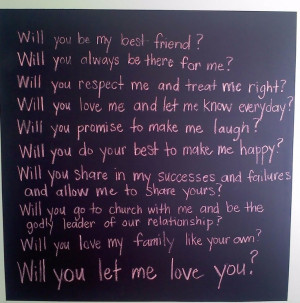 Will you be my best friend?
Will you always be there for me?
Will you respect me and treat me right?
Will you love me and let me know everyday?
Will you promise to make me laugh?
Will you do your best to make me happy?
Will you share in my successes and failures
and allow me to share yours?
Will you go to church with me and be the
godly leader of our relationship?
Will you love my family like your own?
Will you let me love you?